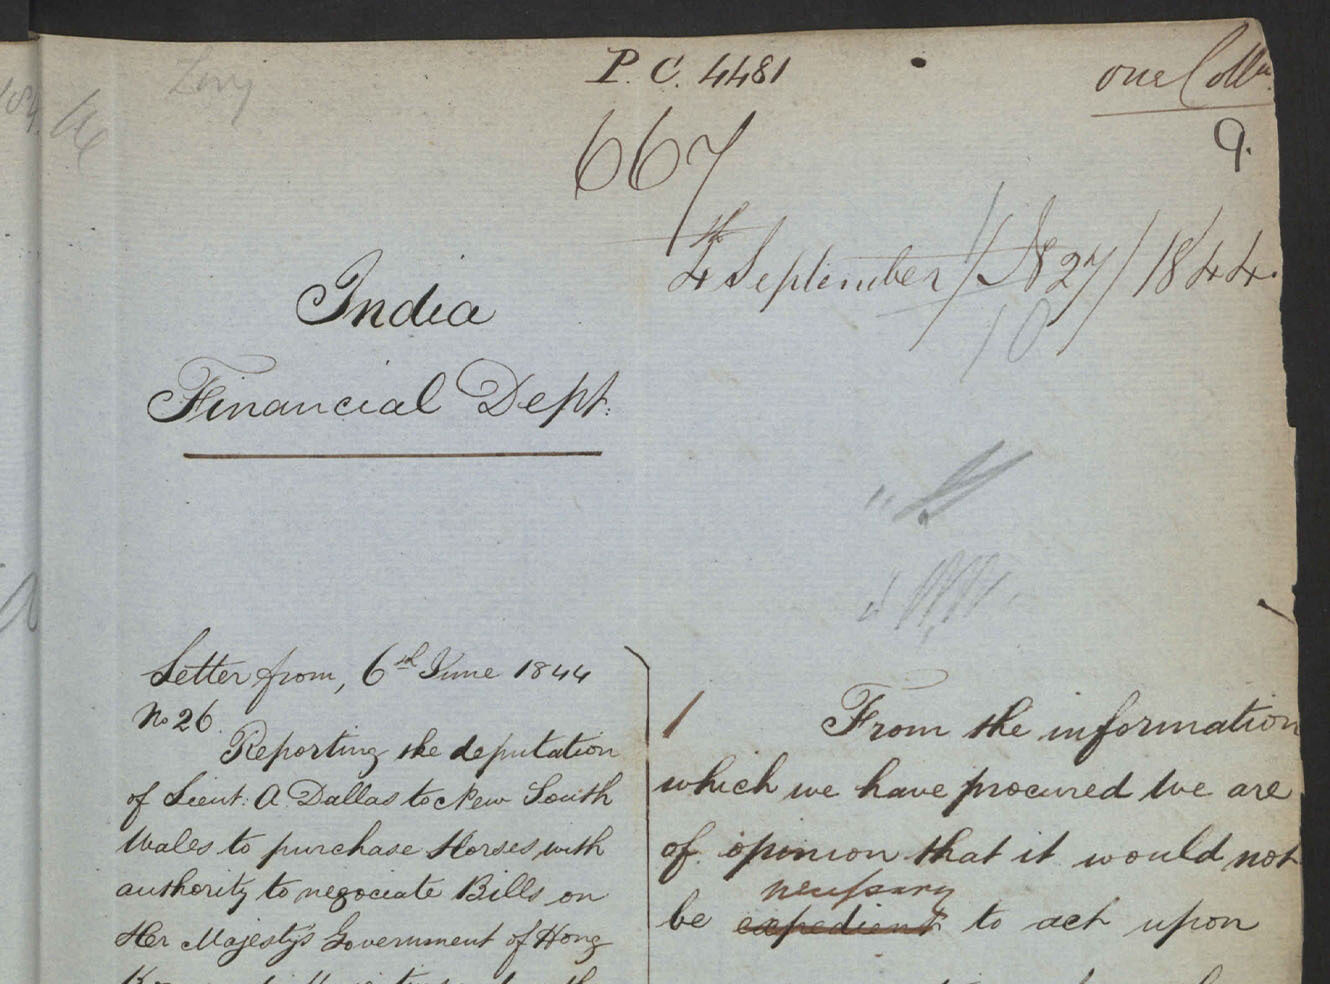 P. C. 4481
one Colln.
667
9.
4th September / N 27 / 1844.
10
India
Financial Dept.
Letter from, 6th June 1844
No 26.
Reporting the deputation
of Lieut: A. Dallas to New South
Wales to purchase Horses, with
authority to negociate Bills on
Her Majesty's Government of Hong
1 From the information
which we have procured we are
of opinion that it would not
necessary
be expedient to act upon